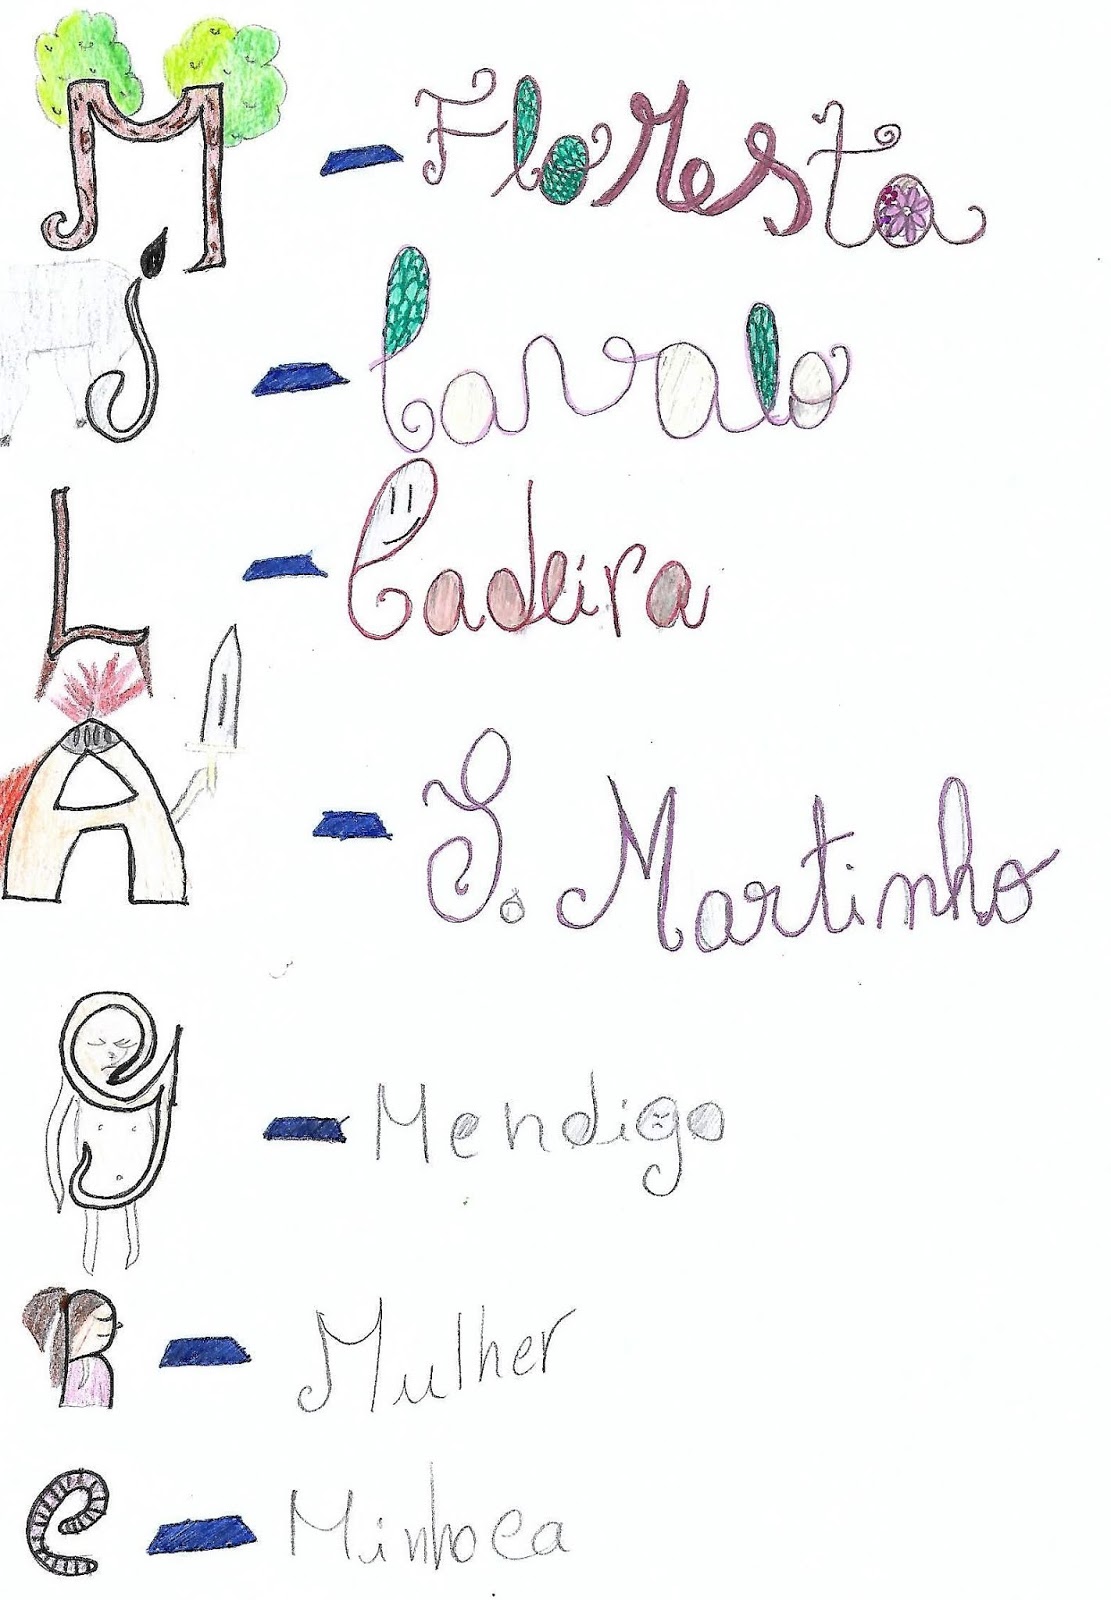 M - Floresta
J - Cavalo
L - Cadeira
A - S. Martinho
g - Mendigo
R - Mulher
e - Minhoca